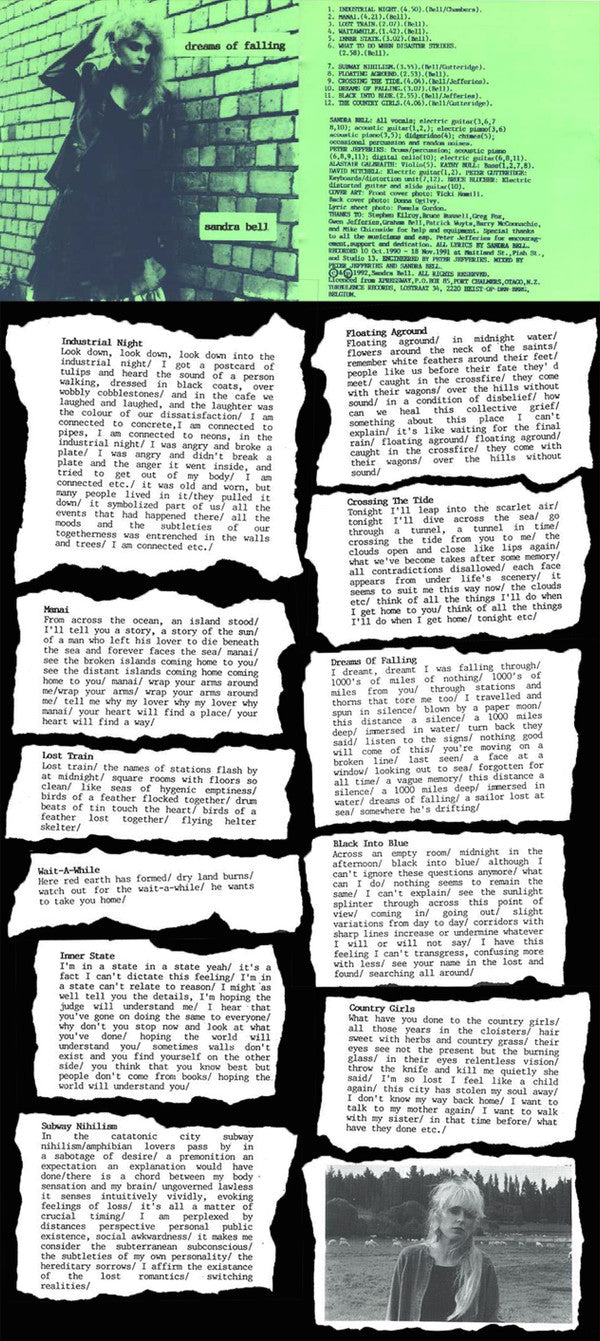 dreams of falling
sandra bell
1. INDUSTRIAL NIGHT.(4.50).(Bell/Chambers).
2. MANAI.(4.21).(Bell).
3. LOST TRAIN.(2.07).(Bell).
4. WAITAWHILE.(1.42).(Bell).
5. INNER STATE.(3.02).(Bell).
6. WHAT TO DO WHEN DISASTER STRIKES.
(2.58).(Bell).
7. SUBWAY NIHILISM.(3.55).(Bell/Gutteridge).
8. FLOATING AGROUND.(2.53).(Bell).
9. CROSSING THE TIDE.(4.04).(Bell/Jefferies).
10. DREAMS OF FALLING.(3.07).(Bell).
11. BLACK INTO BLUE.(2.55).(Bell/Jefferies).
12. THE COUNTRY GIRLS.(4.06).(Bell/Gutteridge).
SANDRA BELL: All vocals; electric guitar(3,6,7
8,10); acoustic guitar(1,2,); electric piano(3,6)
acoustic piano(3,5); didgeridoo(4); chimes(5);
occasional percussion and random noises.
PETER JEFFERIES: Drums/percussion; acoustic piano
(6,8,9,11); digital cello(10); electric guitar(6,8,11).
ALASTAIR GALBRAITH: Violin(5). KATHY BULL: Bass(1,2,7,8).
DAVID MITCHELL: Electric guitar(1,2). PETER GUTTERIDGE:
Keyboards/distortion unit(7,12). BRUCE BLUCHER: Electric
distorted guitar and slide guitar(10).
COVER ART: Front cover photo: Vicki
Back cover photo: Donna Ogilvy.
Lyric sheet photo: Pamela Gordon.
THANKS TO: Stephen Kilroy,Bruce Russell,Greg Fox,
Gwen Jefferies,Graham Bell,Patrick Wuyts,Barry McConnachie,
and Mike Chicomide for help and equipment. Special thanks
to all the musicians and esp. Peter Jefferies for encourag-
ement,support and dedication. ALL LYRICS BY SANDRA BELL.
RECORDED 10 Oct.1990 - 18 Nov.1991 at Maitland St.,Fish St.,
and Studio 13. ENGINEERED BY PETER JEFFERIES. MIXED BY
PETER JEFFERIES AND SANDRA BELL.
©&℗1992,Sandra Bell. ALL RIGHTS RESERVED.
Licenced from XPRESSWAY,P.O.BOX 85,PORT CHALMERS,OTAGO,N.Z.
TURBULENCE RECORDS, LOSTRAAT 34, 2220 HEIST-OP-DEN BERG,
BELGIUM.
Industrial Night
Look down, look down, look down into the
industrial night/ I got a postcard of
tulips and heard the sound of a person
walking, dressed in black coats, over
wobbly cobblestones/ and in the cafe we
laughed and laughed, and the laughter was
the colour of our dissatisfaction/ I am
connected to concrete,I am connected to
pipes, I am connected to neons, in the
industrial night/ I was angry and broke a
plate/ I was angry and didn't break a
plate and the anger it went inside, and
tried to get out of my body/ I am
connected etc./ it was old and worn, but
many people lived in it/they pulled it
down/ it symbolized part of us/ all the
events that had happened there/ all the
moods and the subtleties of our
togetherness was entrenched in the walls
and trees/ I am connected etc./
Manai
From across the ocean, an island stood/
I'll tell you a story, a story of the sun/
of a man who left his lover to die beneath
the sea and forever faces the sea/ manai/
see the broken islands coming home to you/
see the distant islands coming home coming
home to you/ manai/ wrap your arms around
me/wrap your arms/ wrap your arms around
me/ tell me why my lover why my lover why
manai/ your heart will find a place/ your
heart will find a way/
Lost Train
Lost train/ the names of stations flash by
at midnight/ square rooms with floors so
clean/ like seas of hygenic emptiness/
birds of a feather flocked together/ drum
beats of tin touch the heart/ birds of a
feather lost together/ flying helter
skelter/
Wait-A-While
Here red earth has formed/ dry land burns/
watch out for the wait-a-while/ he wants
to take you home/
Inner State
I'm in a state in a state yeah/ it's a
fact I can't dictate this feeling/ I'm in
a state can't relate to reason/ I might as
well tell you the details, I'm hoping the
judge will understand me/ I hear that
you've gone on doing the same to everyone/
why don't you stop now and look at what
you've done/ hoping the world will
understand you/ sometimes walls don't
exist and you find yourself on the other
side/ you think that you know best but
people don't come from books/ hoping the
world will understand you/
Subway Nihilism
In the catatonic city subway
nihilism/amphibian lovers pass by in
a sabotage of desire/ a premonition an
expectation an explanation would have
done/there is a chord between my body
sensation and my brain/ ungoverned lawless
it senses intuitively vividly, evoking
feelings of loss/ it's all a matter of
crucial timing/ I am perplexed by
distances perspective personal public
existence, social awkwardness/ it makes me
consider the subterranean subconscious/
the subtleties of my own personality/ the
hereditary sorrows/ I affirm the existance
of the lost romantics/ switching
realities/
Floating Aground
Floating aground/ in midnight water/
flowers around the neck of the saints/
remember white feathers around their feet/
people like us before their fate they' d
meet/ caught in the crossfire/ they come
with their wagons/ over the hills without
sound/ in a condition of disbelief/ how
can we heal this collective grief/
something about this place I can't
explain/ it's like waiting for the final
rain/ floating aground/ floating aground/
caught in the crossfire/ they come with
their wagons/ over the hills without
sound/
Crossing The Tide
Tonight I'll leap into the scarlet air/
tonight I'll dive across the sea/ go
through a tunnel, a tunnel in time/
crossing the tide from you to me/ the
clouds open and close like lips again/
what we've become takes after some memory/
all contradictions disallowed/ each face
appears from under life's scenery/ it
seems to suit me this way now/ the clouds
etc/ think of all the things I'll do when
I get home to you/ think of all the things
I'll do when I get home/ tonight etc/
Dreams Of Falling
I dreamt, dreamt I was falling through/
1000's of miles of nothing/ 1000's of
miles from you/ through stations and
thorns that tore me too/ I travelled and
spun in silence/ blown by a paper moon/
this distance a silence/ a 1000 miles
deep/ immersed in water/ turn back they
said/ listen to the signs/ nothing good
will come of this/ you're moving on a
broken line/ last seen/ a face at a
window/ looking out to sea/ forgotten for
all time/ a vague memory/ this distance a
silence/ a 1000 miles deep/ immersed in
water/ dreams of falling/ a sailor lost at
sea/ somewhere he's drifting/
Black Into Blue
Across an empty room/ midnight in the
afternoon/ black into blue/ although I
can't ignore these questions anymore/ what
can I do/ nothing seems to remain the
same/ I can't explain/ see the sunlight
splinter through across this point of
view/ coming in/ going out/ slight
variations from day to day/ corridors with
sharp lines increase or undermine whatever
I will or will not say/ I have this
feeling I can't transgress, confusing more
with less/ see your name in the lost and
found/ searching all around/
Country Girls
What have you done to the country girls/
all those years in the cloisters/ hair
sweet with herbs and country grass/ their
eyes see not the present but the burning
glass/ in their eyes relentless vision/
throw the knife and kill me quietly she
said/ I'm so lost I feel like a child
again/ this city has stolen my soul away/
I don't know my way back home/ I want to
talk to my mother again/ I want to walk
with my sister/ in that time before/ what
have they done etc./